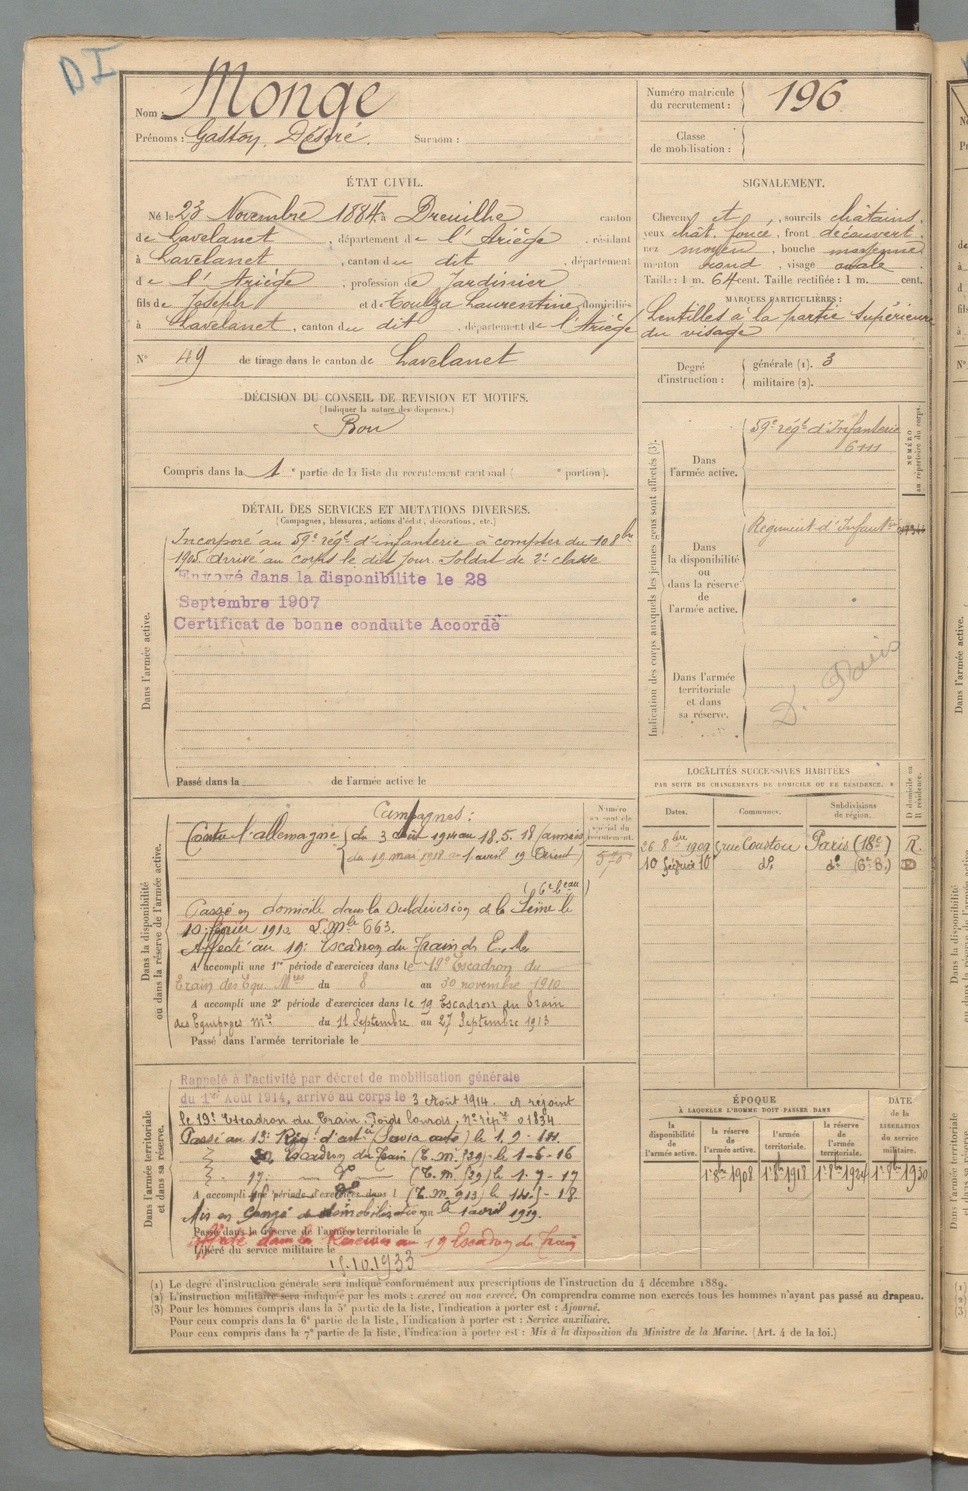 D I
Nom : Monge
Prénoms : Gaston, Désiré. Surnom :
Numéro matricule du recrutement : 196
Classe de mobilisation :
ÉTAT CIVIL.
Né le 23 Novembre 1884 à Dreuilhe canton
de Lavelanet, département de l'Ariège, résidant
à Lavelanet, canton du dit, département
de l'Ariège, profession de Jardinier
fils de Joseph et de Toulza Laurentine domiciliés
à Lavelanet, canton du dit, département de l'Ariège
N° 49 de tirage dans le canton de Lavelanet
SIGNALEMENT.
Cheveux et, sourcils châtains.
yeux chât. foncé, front découvert.
nez moyen, bouche moyenne
menton rond, visage ovale
Taille : 1 m. 64 cent. Taille rectifiée : 1 m. cent.
MARQUES PARTICULIÈRES :
Lentilles à la partie supérieure
du visage
Degré d'instruction : générale (1). 3
militaire (2).
DÉCISION DU CONSEIL DE REVISION ET MOTIFS.
(Indiquer la nature des dispenses.)
Bon
Compris dans la 1e partie de la liste du recrutement cantonal ( e portion).
DÉTAIL DES SERVICES ET MUTATIONS DIVERSES.
(Campagnes, blessures, actions d'éclat, décorations, etc.)
Dans l'armée active.
Incorporé au 59e régt d'infanterie à compter du 10 8bre
1905. Arrivé au corps le dit jour. Soldat de 2e classe
Envoyé dans la disponibilite le 28
Septembre 1907
Certificat de bonne conduite Accordé
Passé dans la de l'armée active le
Indication des corps auxquels les jeunes gens sont affectés (3).
NUMÉRO au répertoire du corps.
Dans l'armée active.
59e régt d'Infanterie
6111
Dans la disponibilité ou dans la réserve de l'armée active.
Régiment d'Infantie
Dans l'armée territoriale et dans sa réserve.
D. Paris
LOCALITÉS SUCCESSIVES HABITÉES
PAR SUITE DE CHANGEMENTS DE DOMICILE OU DE RÉSIDENCE.
Dates. Communes. Subdivisions de région. D domicile ou R résidence.
26 8bre 1909 rue Coustou Paris (18e) R.
10 février 10 do do (6e B.) D
Dans la disponibilité ou dans la réserve de l'armée active.
Campagnes :
Contre l'allemagne du 3 août 1914 au 18.5.18 (armées)
du 19 mai 1918 au 1 avril 19
(6e beau)
Passé en domicile dans la subdivision de la Seine le
10 février 1910. 663.
Affecté au 19e Escadron du Train
A accompli une 1re période d'exercices dans le 19e Escadron du
Train des Equ. Mres du 8 au 30 novembre 1910
A accompli une 2e période d'exercices dans le 19 Escadron du train
des Equipages mre du 11 Septembre au 27 Septembre 1913
Passé dans l'armée territoriale le
Dans l'armée territoriale et dans sa réserve.
Rappelé à l'activité par décret de mobilisation générale
du 1er Août 1914, arrivé au corps le 3 Août 1914. A rejoint
le 19e Escadron du Train. Poids lourds, n° répre 01834
Passé au 13e Régt d'artie
20 Escadron du Train le 1-6-16
le 1-7-17
A accompli une période d'exercices dans l
Mis en Congé de démobilisation le 1 avril 1919.
Passé dans la réserve de l'armée territoriale le
Affecté dans la Réserve au 19 Escadron du Train
Libéré du service militaire le
15.10.1933
ÉPOQUE
À LAQUELLE L'HOMME DOIT PASSER DANS
la disponibilité de l'armée active. la réserve de l'armée active. l'armée territoriale. la réserve de l'armée territoriale. DATE de la LIBÉRATION du service militaire.
1er 8bre 1908 1er 8bre 1918 1er 8bre 1924 1er 8bre 1930
(1) Le degré d'instruction générale sera indiqué conformément aux prescriptions de l'instruction du 4 décembre 1889.
(2) L'instruction militaire sera indiquée par les mots : exercé ou non exercé. On comprendra comme non exercés tous les hommes n'ayant pas passé au drapeau.
(3) Pour les hommes compris dans la 5e partie de la liste, l'indication à porter est : Ajourné.
Pour ceux compris dans la 6e partie de la liste, l'indication à porter est : Service auxiliaire.
Pour ceux compris dans la 7e partie de la liste, l'indication à porter est : Mis à la disposition du Ministre de la Marine. (Art. 4 de la loi.)